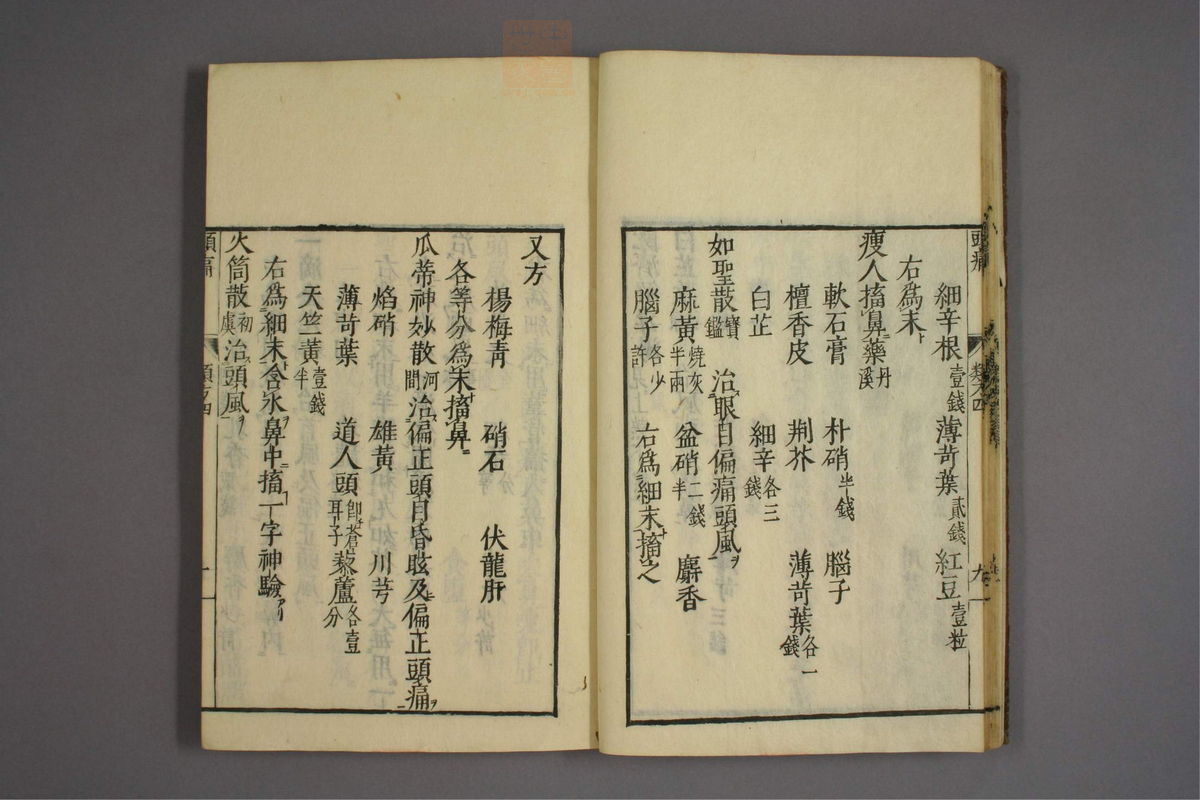 頭痛
細辛根壹錢薄苛葉貳錢紅豆壹粒
右為末
瘦人搐鼻藥丹溪
軟石膏 朴硝半錢 腦子
檀香皮 荆芥 薄苛葉各一錢
白芷 細辛各三錢
如聖散寶鑑 治眼目偏痛頭風ヲ
麻黃燒灰半兩 盆硝二錢半 麝香
腦子各少許 右為細末搐之
又方
楊梅青 硝石 伏龍肝
各等分為末搐鼻
瓜蒂神妙散河間 治偏正頭目昏眩及偏正頭痛ヲ
焰硝 雄黃 川芎
薄苛葉 道人頭即蒼耳子 藜蘆各壹分
天竺黃壹錢半
右為細末含水鼻中搐一字神驗
火筒散初虞治頭風ヲ
頭痛